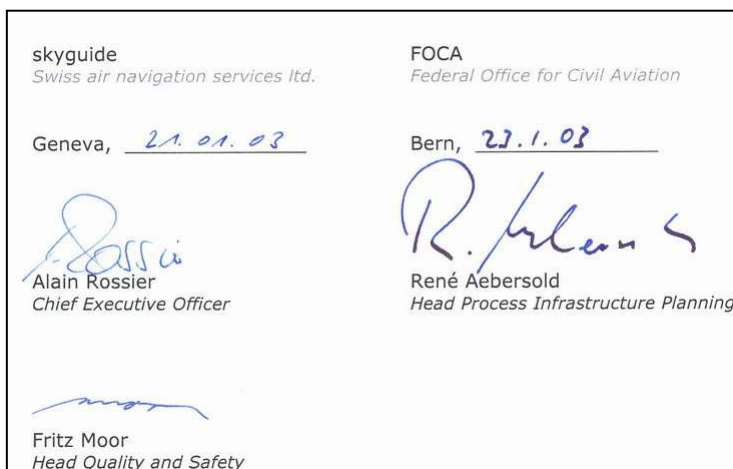 skyguide
Swiss air navigation services ltd.
Geneva, 21.01.03
Alain Rossier
Chief Executive Officer
Fritz Moor
Head Quality and Safety
FOCA
Federal Office for Civil Aviation
Bern, 23.1.03
R.
René Aebersold
Head Process Infrastructure Planning